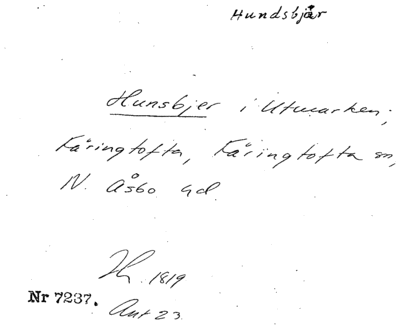 Hundsbjär
Hunsbjer i Utmarken;
Färingtofta, Färingtofta sn,
N. Åsbo hd.
1819
Nr 7237.
Ant 23